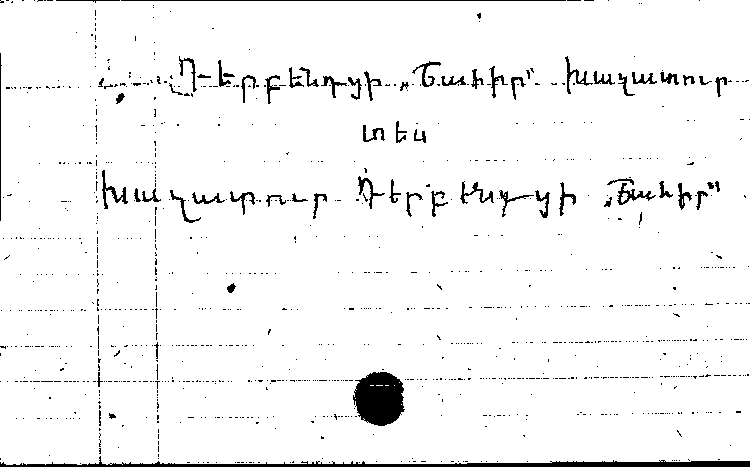 Դերբենդցի „Շահիր“ Խաչատուր
տես
Խաչատուր Դերբենդցի „Շահիր“